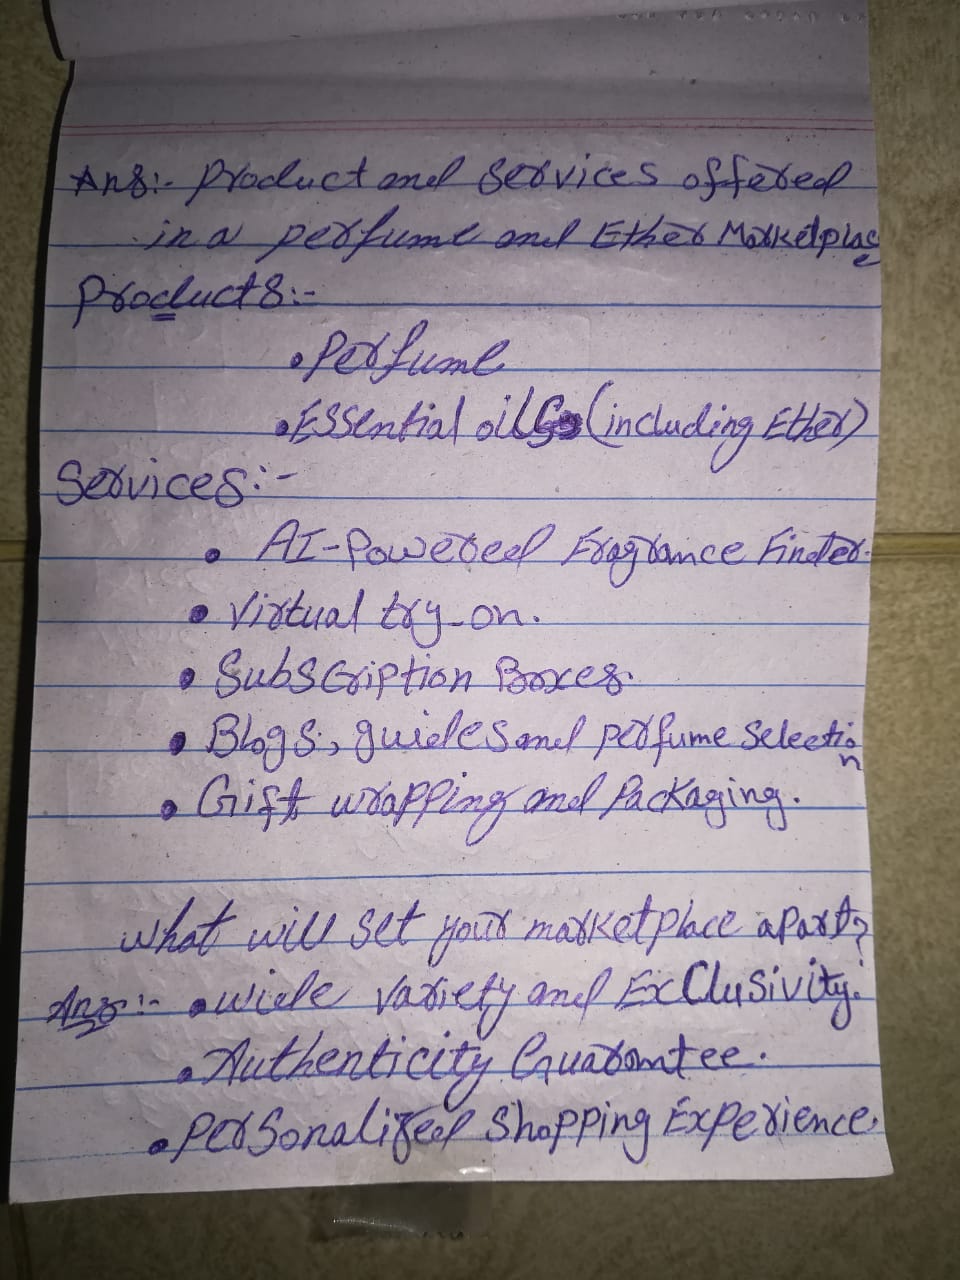 Ans:- Product and Services offered
in a perfume and Ether Marketplace
Products:-
• Perfume
• Essential oils (including Ether)
Services:-
• AI-Powered Fragrance Finder.
• Virtual try-on.
• Subscription Boxes.
• Blogs, guides and perfume Selection
• Gift wrapping and Packaging.
What will set your marketplace apart?
Ans:- • wide variety and ExClusivity.
• Authenticity Guarantee.
• Personalized Shopping Experience.